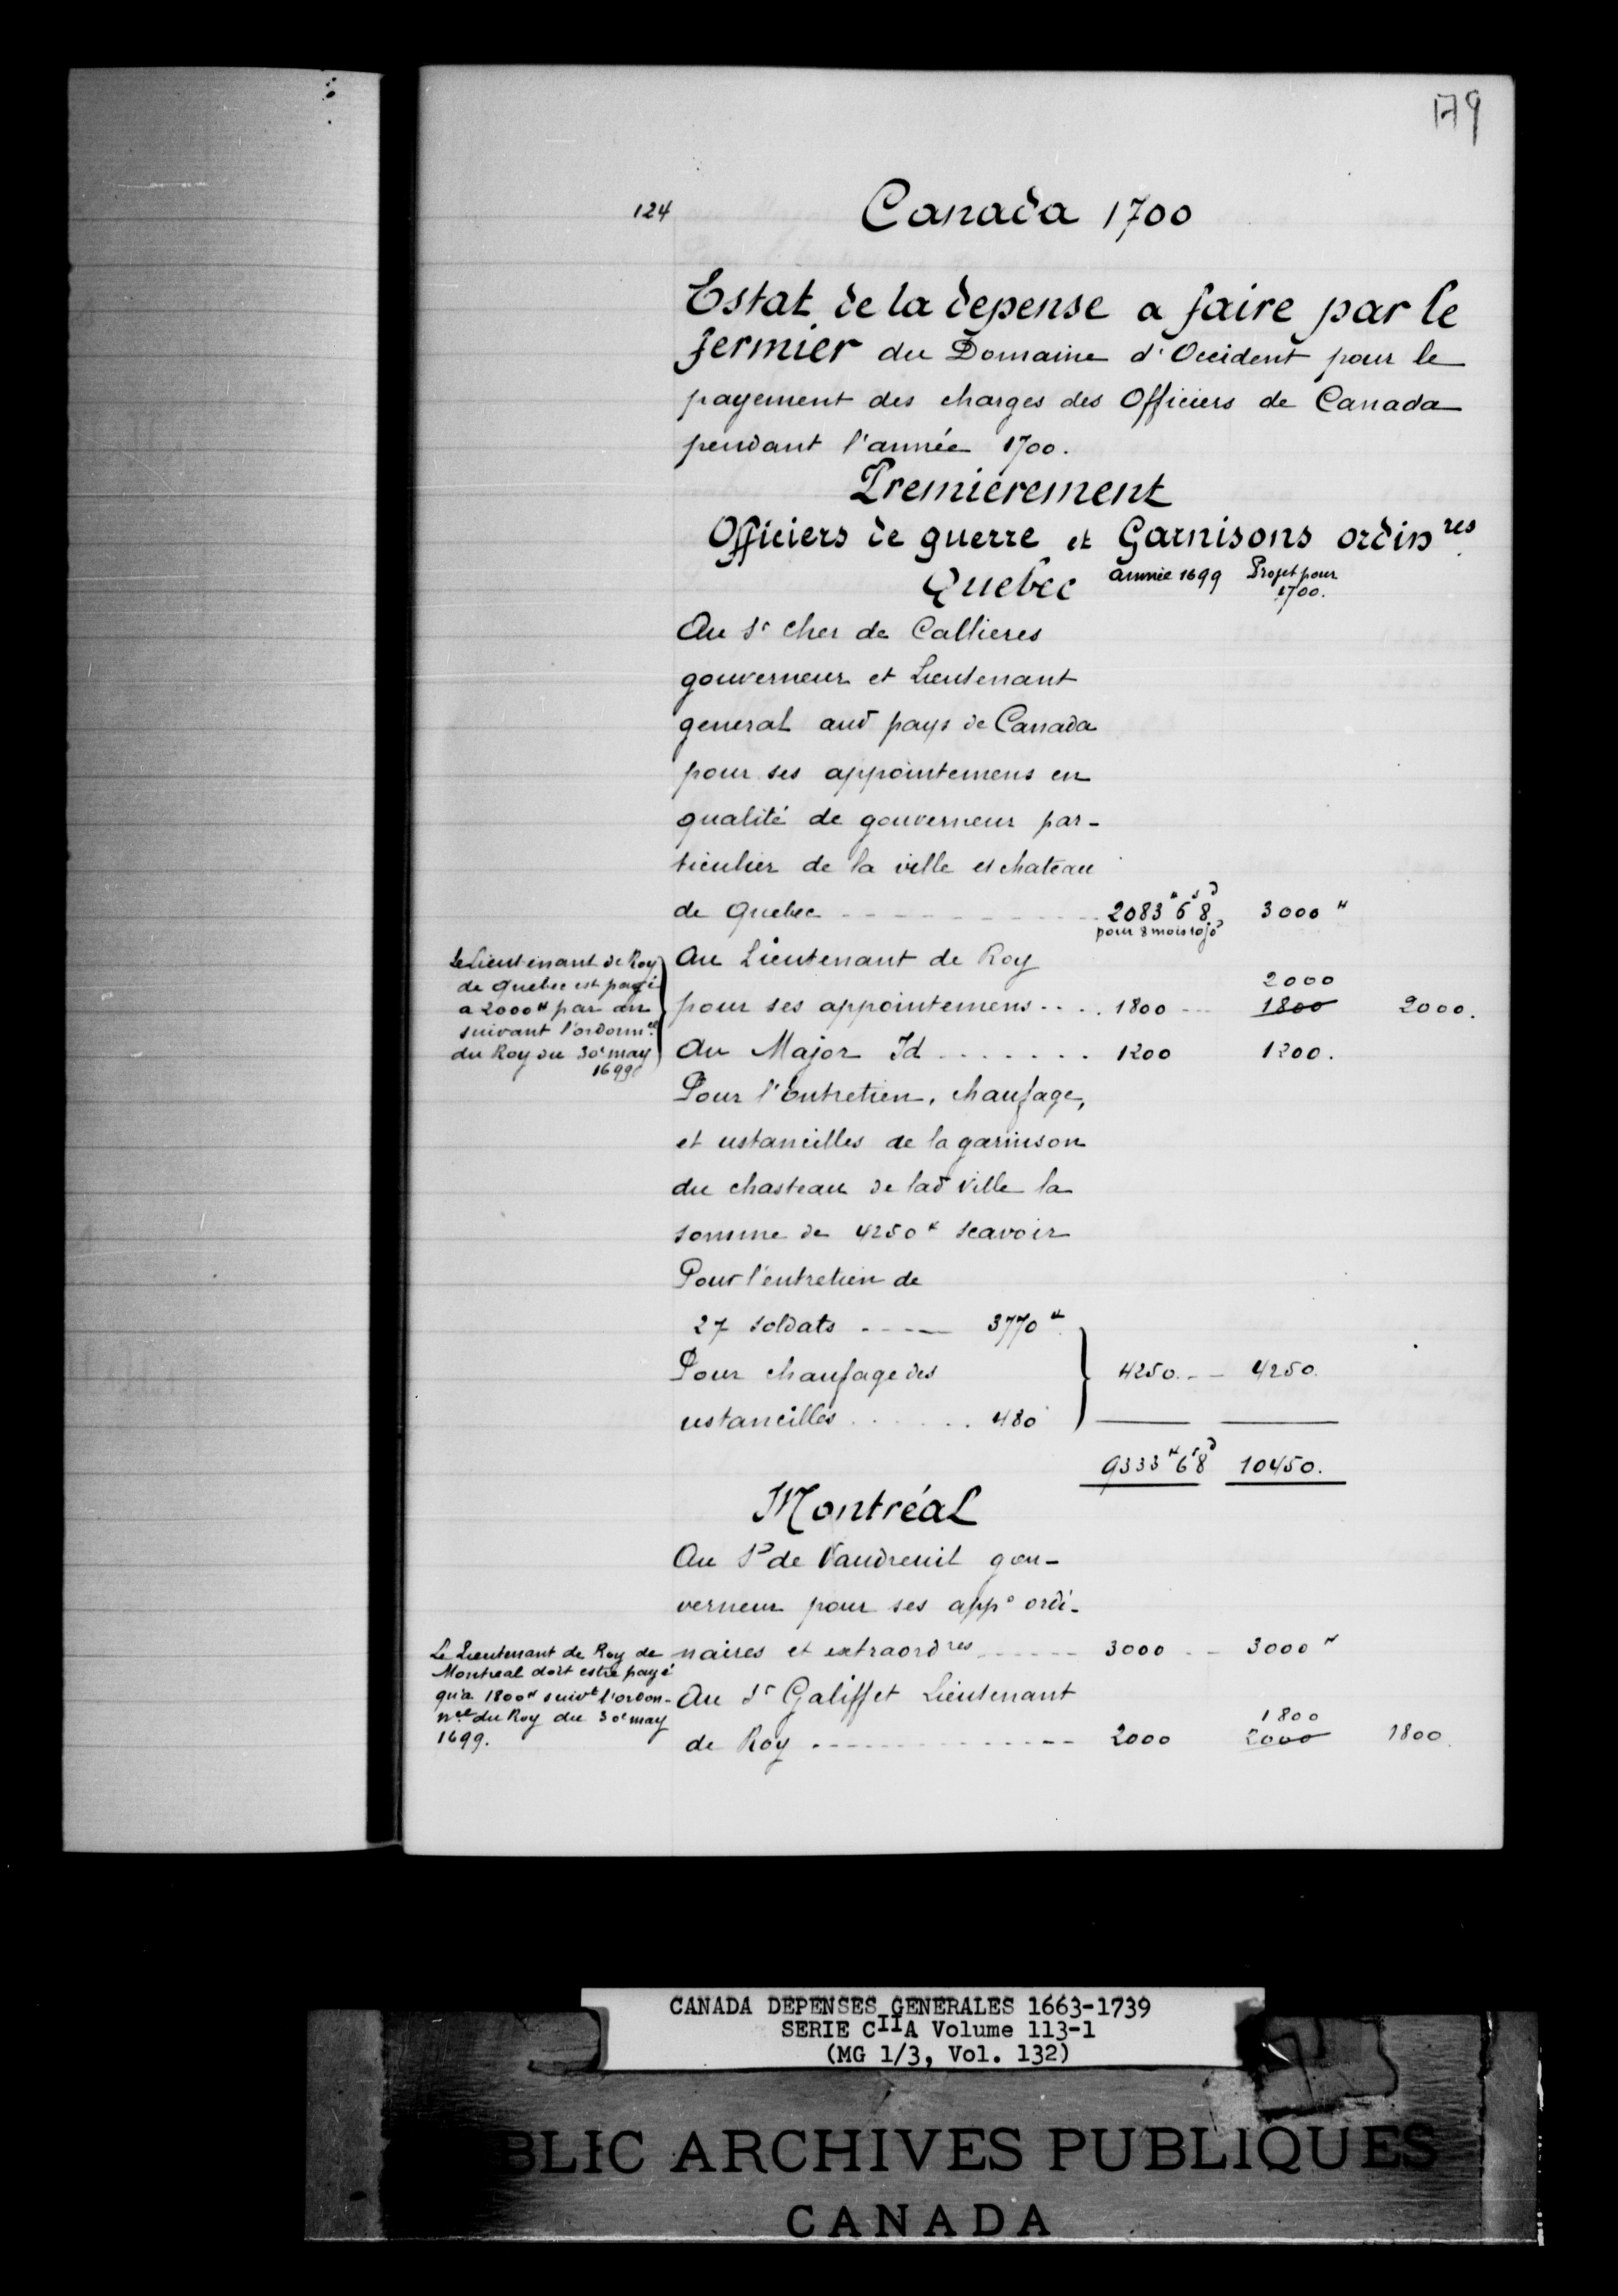 179
124 Canada 1700
Estat de la depense a faire par le
fermier du Domaine d'Occident pour le
payement des charges des Officiers de Canada
pendant l'année 1700.
Premierement
Officiers de guerre et Garnisons ordin.res
Quebec année 1699 Projet pour
1700.
Au Sr Cher de Callieres
gouverneur et Lieutenant
general aud pays de Canada
pour ses appointemens en
qualité de gouverneur par-
ticulier de la ville et chateau
de Quebec - - - 2083# 6s 8d 3000#
pour 8 mois 10 jo
Au Lieutenant de Roy
2000
pour ses appointemens . . . . 1800 - - - 1800 2000.
Au Major Id . . . . . . . 1200 1200.
Le Lieutenant de Roy
de Quebec est payé
a 2000# par an
suivant l'ordonn.ce
du Roy du 30e may
1699
Pour l'Entretien, chaufage,
et ustancilles de la garnison
du chasteau de lad ville la
somme de 4250# scavoir
Pour l'entretien de
27 soldats - - - 3770#
Pour chaufage des 4250. - - 4250.
ustancilles . . . . . . 480
9333# 6s 8d 10450.
Montréal
Au Sr de Vaudreuil gou-
verneur pour ses appo ordi-
naires et extraordres - - - 3000 - - 3000#
Au Sr Galiffet Lieutenant
1800
de Roy - - - 2000 2000 1800.
Le Lieutenant de Roy de
Montreal doit estre payé
qu'a 1800# suivt l'ordon-
n.ce du Roy du 30e may
1699.
CANADA DEPENSES GENERALES 1663-1739
SERIE CIIA Volume 113-1
(MG 1/3, Vol. 132)
BLIC ARCHIVES PUBLIQUES
CANADA